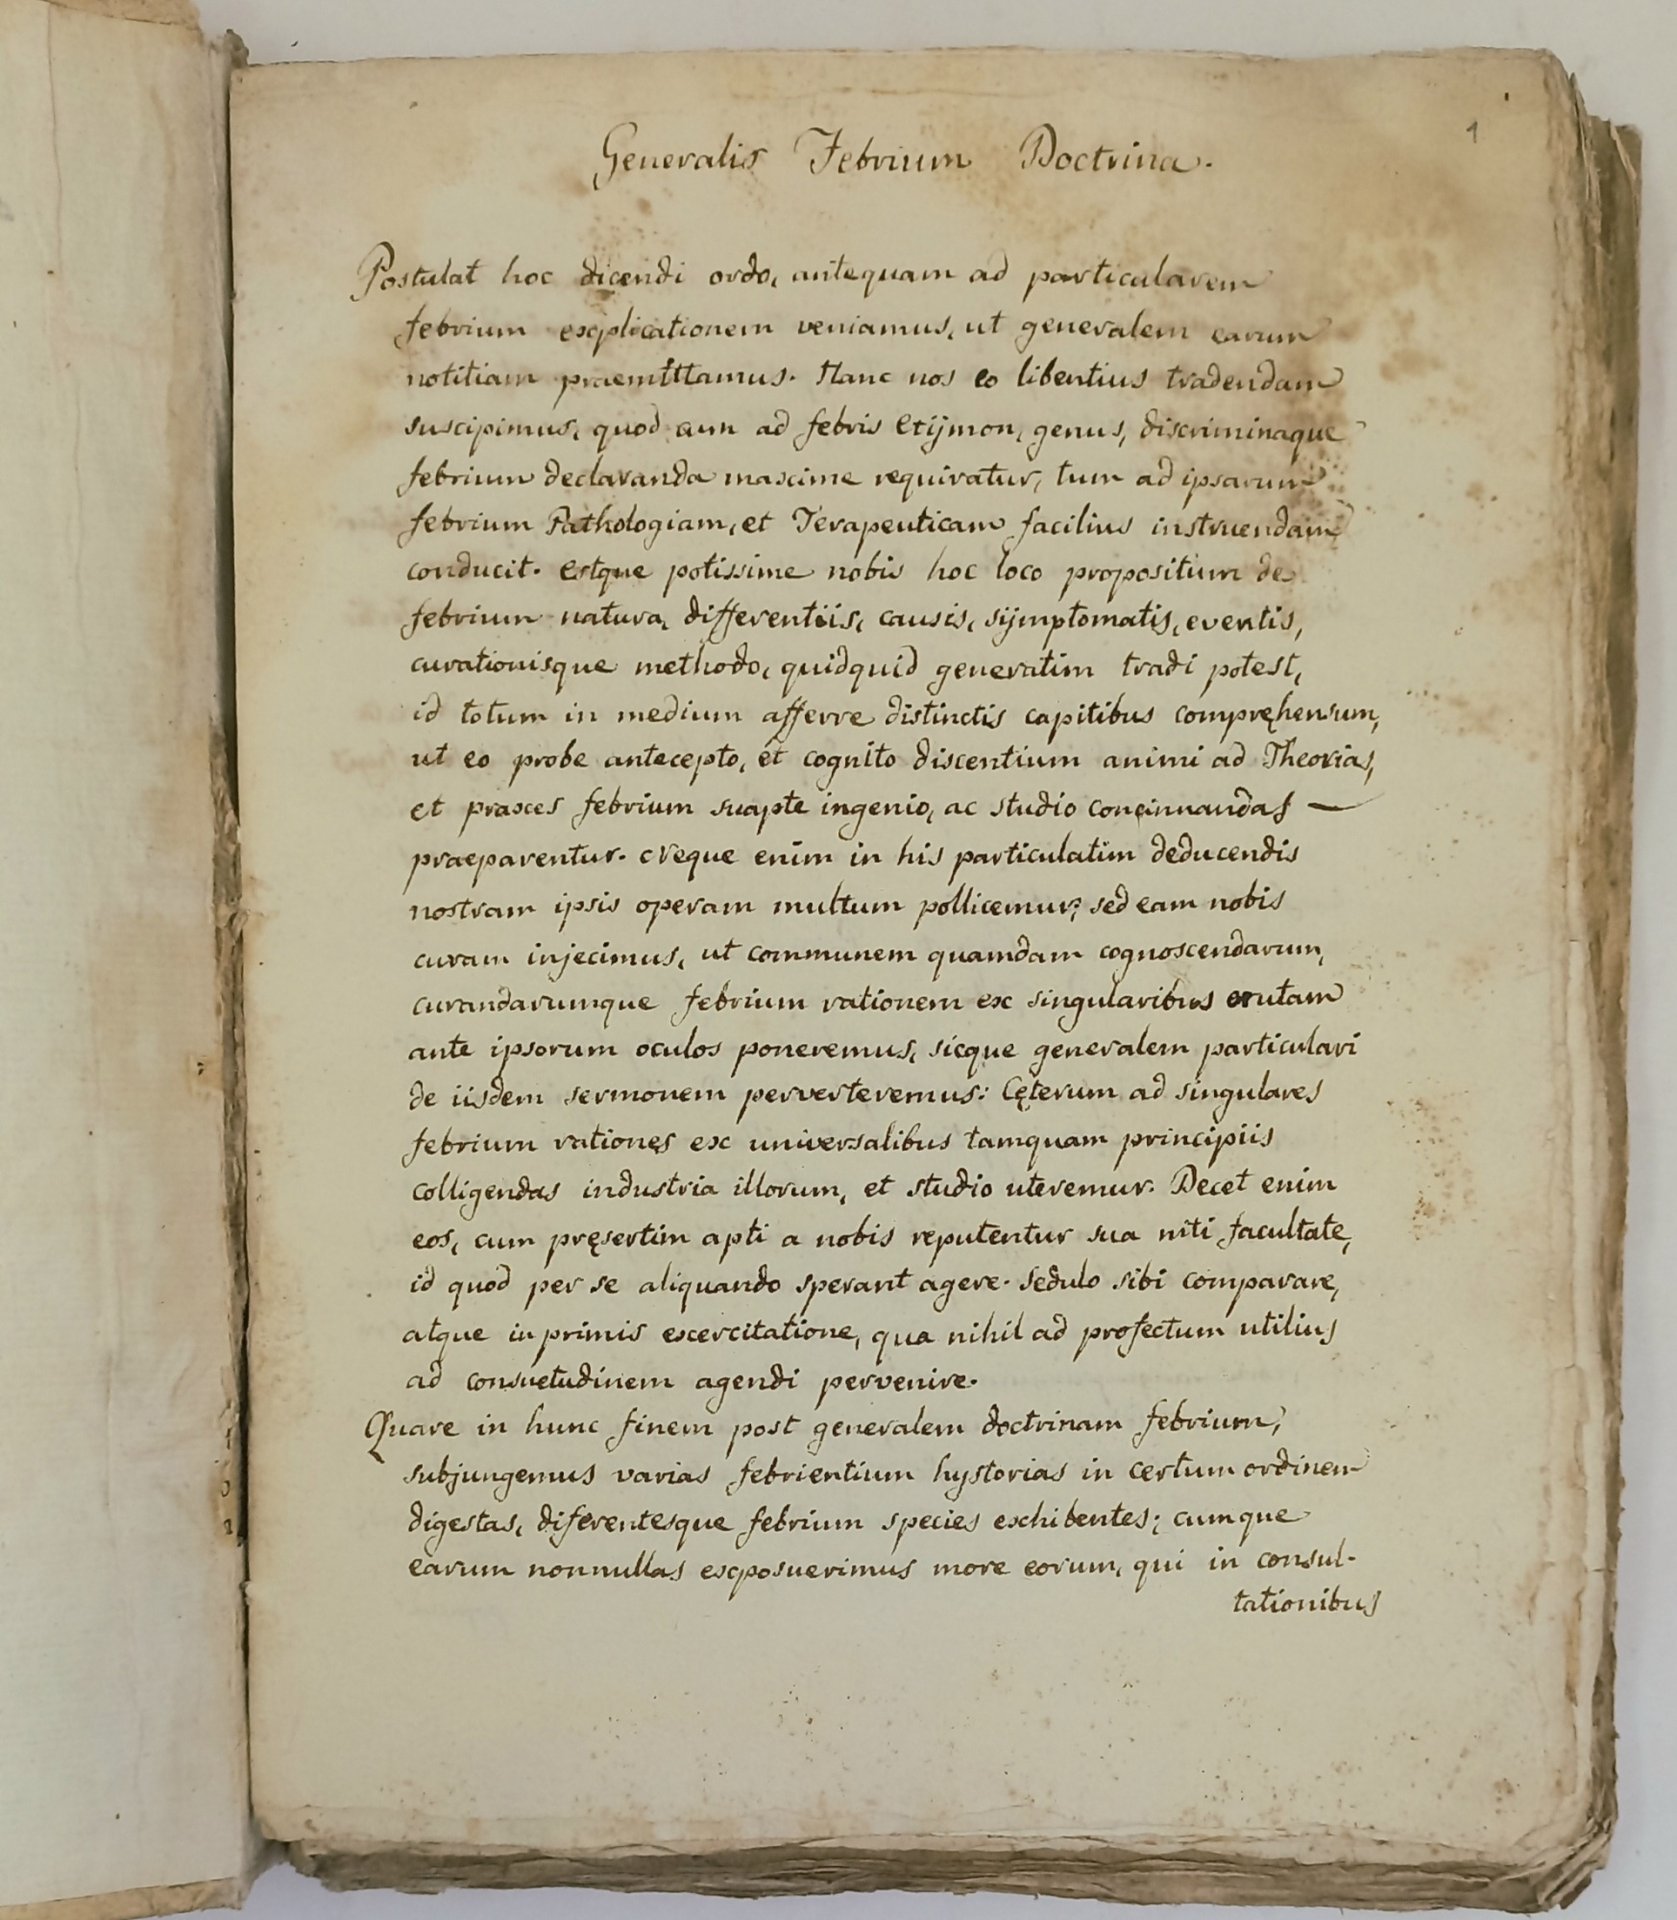 1
Generalis Febrium Doctrina.
Postulat hoc dicendi ordo, antequam ad particularem
febrium explicationem veniamus, ut generalem earum
notitiam praemittamus. Hanc nos eo libentius tradendam
suscipimus, quod cum ad febris etijmon, genus, discriminaque
febrium declaranda maxime requiratur, tum ad ipsarum
febrium Pathologiam, et Terapeuticam facilius instruendam
conducit. estque potissime nobis hoc loco propositum de
febrium natura, differentiis, causis, sijmptomatis, eventis,
curationisque methodo, quidquid generatim tradi potest,
id totum in medium afferre distinctis capitibus compręhensum,
ut eo probe antecepto, et cognito discentium animi ad Theorias,
et praxes febrium suapte ingenio, ac studio concinnandas —
praeparentur. Neque enim in his particulatim deducendis
nostram ipsis operam multum pollicemur; sed eam nobis
curam injecimus, ut communem quamdam cognoscendarum,
curandarumque febrium rationem ex singularibus erutam
ante ipsorum oculos poneremus, sicque generalem particulari
de iisdem sermonem perverteremus: Cęterum ad singulares
febrium rationes ex universalibus tamquam principiis
colligendas industria illorum, et studio uteremur. Decet enim
eos, cum pręsertim apti a nobis reputentur sua niti facultate,
id quod per se aliquando sperant agere. sedulo sibi comparare,
atque in primis exercitatione, qua nihil ad profectum utilius
ad consuetudinem agendi pervenire.
Quare in hunc finem post generalem doctrinam febrium,
subjungemus varias febrientium hystorias in certum ordinem
digestas, diferentesque febrium species exhibentes; cumque
earum nonnullas exposuerimus more eorum, qui in consul-
tationibus